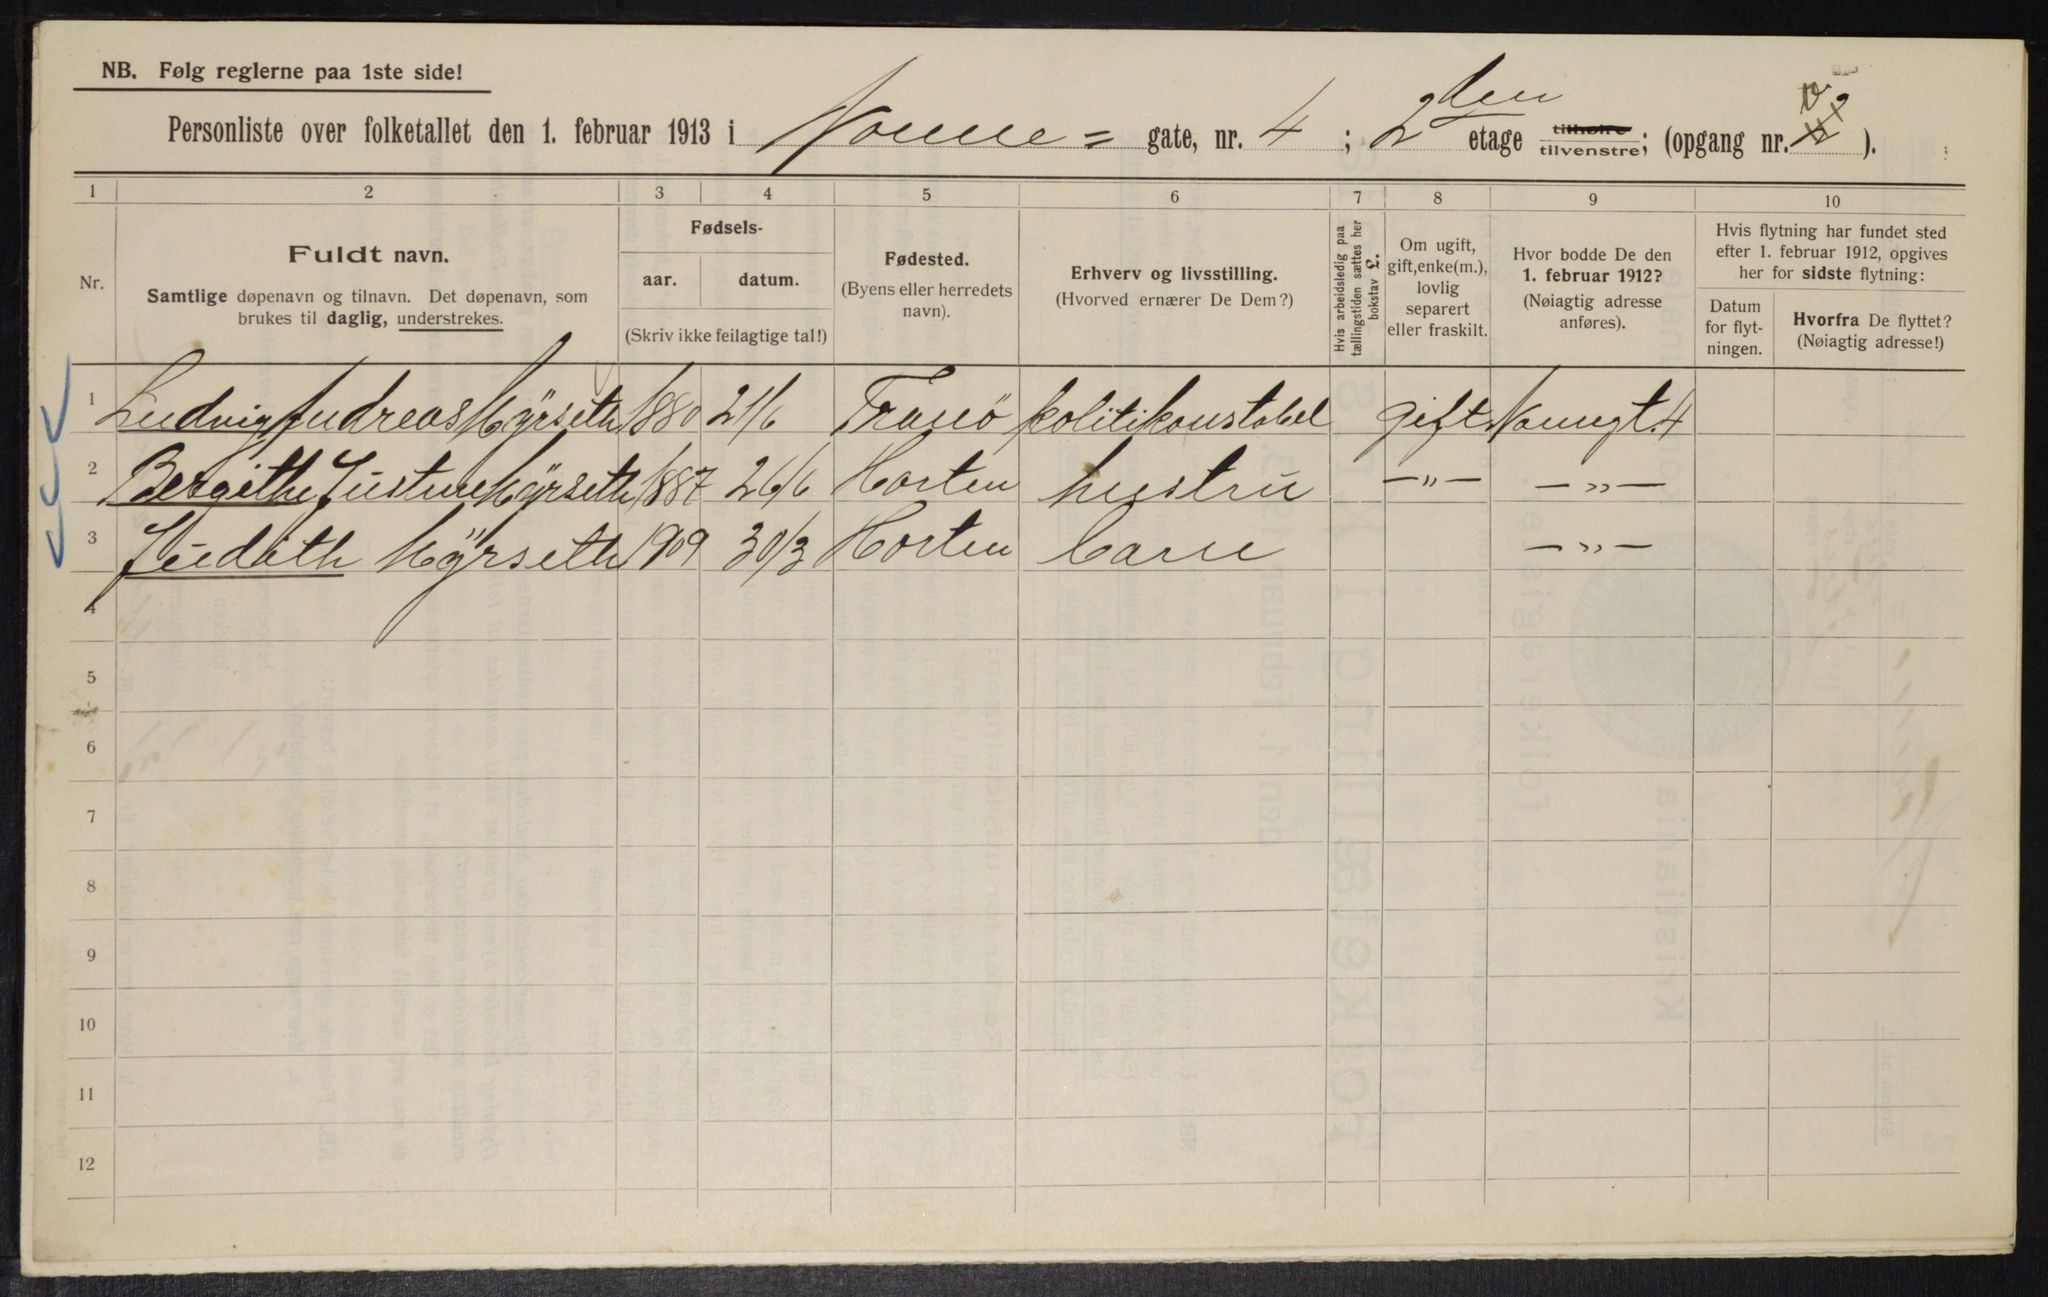 NB. Følg reglerne paa 1ste side!
Personliste over folketallet den 1. februar 1913 i Nonne = gate, nr. 4 ; 2den etage tilhøire tilvenstre; (opgang nr. 2 ).
1 2 3 4 5 6 7 8 9 10
Nr.
Fuldt navn.
Samtlige døpenavn og tilnavn. Det døpenavn, som
brukes til daglig, understrekes.
Fødsels-
aar. datum.
(Skriv ikke feilagtige tal!)
Fødested.
(Byens eller herredets
navn).
Erhverv og livsstilling.
(Hvorved ernærer De Dem?)
Hvis arbeidsledig paa
tællingstiden sættes her
bokstav L.
Om ugift,
gift, enke(m.),
lovlig
separert
eller fraskilt.
Hvor bodde De den
1. februar 1912?
(Nøiagtig adresse
anføres).
Hvis flytning har fundet sted
efter 1. februar 1912, opgives
her for sidste flytning:
Datum
for flyt-
ningen.
Hvorfra De flyttet?
(Nøiagtig adresse!)
1 Ludvig Andreas Myrseth 1880 21/6 Tranö politikonstabel gift Nonngt. 4
2 Bergithe Justine Myrseth 1887 26/6 Horten hustru —"— —"—
3 Judith Myrseth 1909 30/3 Horten barn —"—
4
5
6
7
8
9
10
11
12